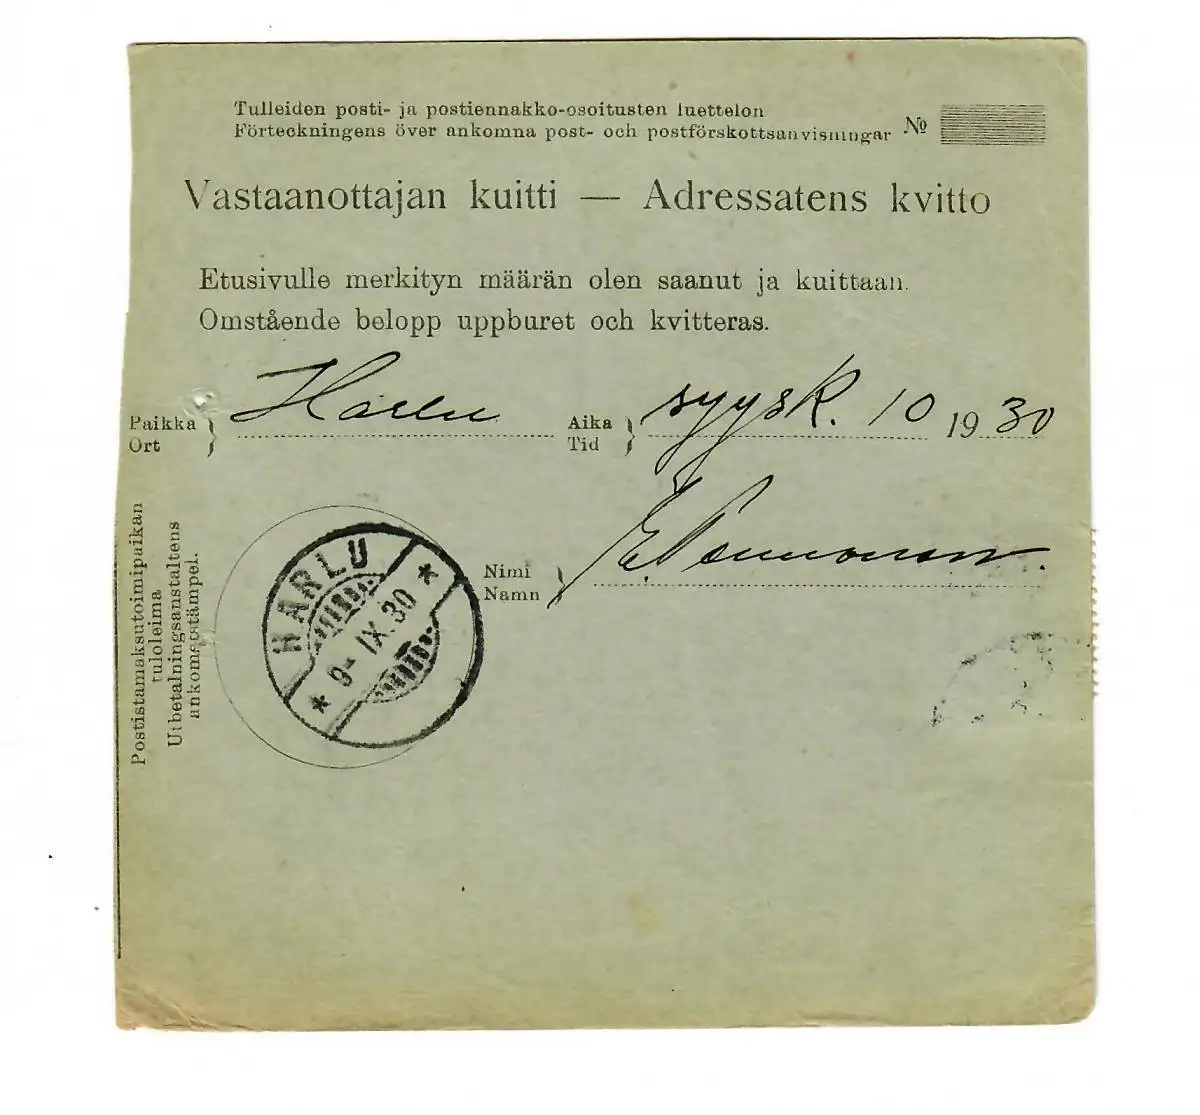 Tulleiden posti- ja postiennakko-osoitusten luettelon
Förteckningens över ankomna post- och postförskottsanvisningar №
Vastaanottajan kuitti — Adressatens kvitto
Etusivulle merkityn määrän olen saanut ja kuittaan.
Omstående belopp uppburet och kvitteras.
Paikka
Ort
Harlu
Aika
Tid
syysk. 10 1930
Nimi
Namn
E.
Postistamaksutoimipaikan
tuloleima
Utbetalningsanstaltens
ankomststämpel.
HARLU
9- IX. 30